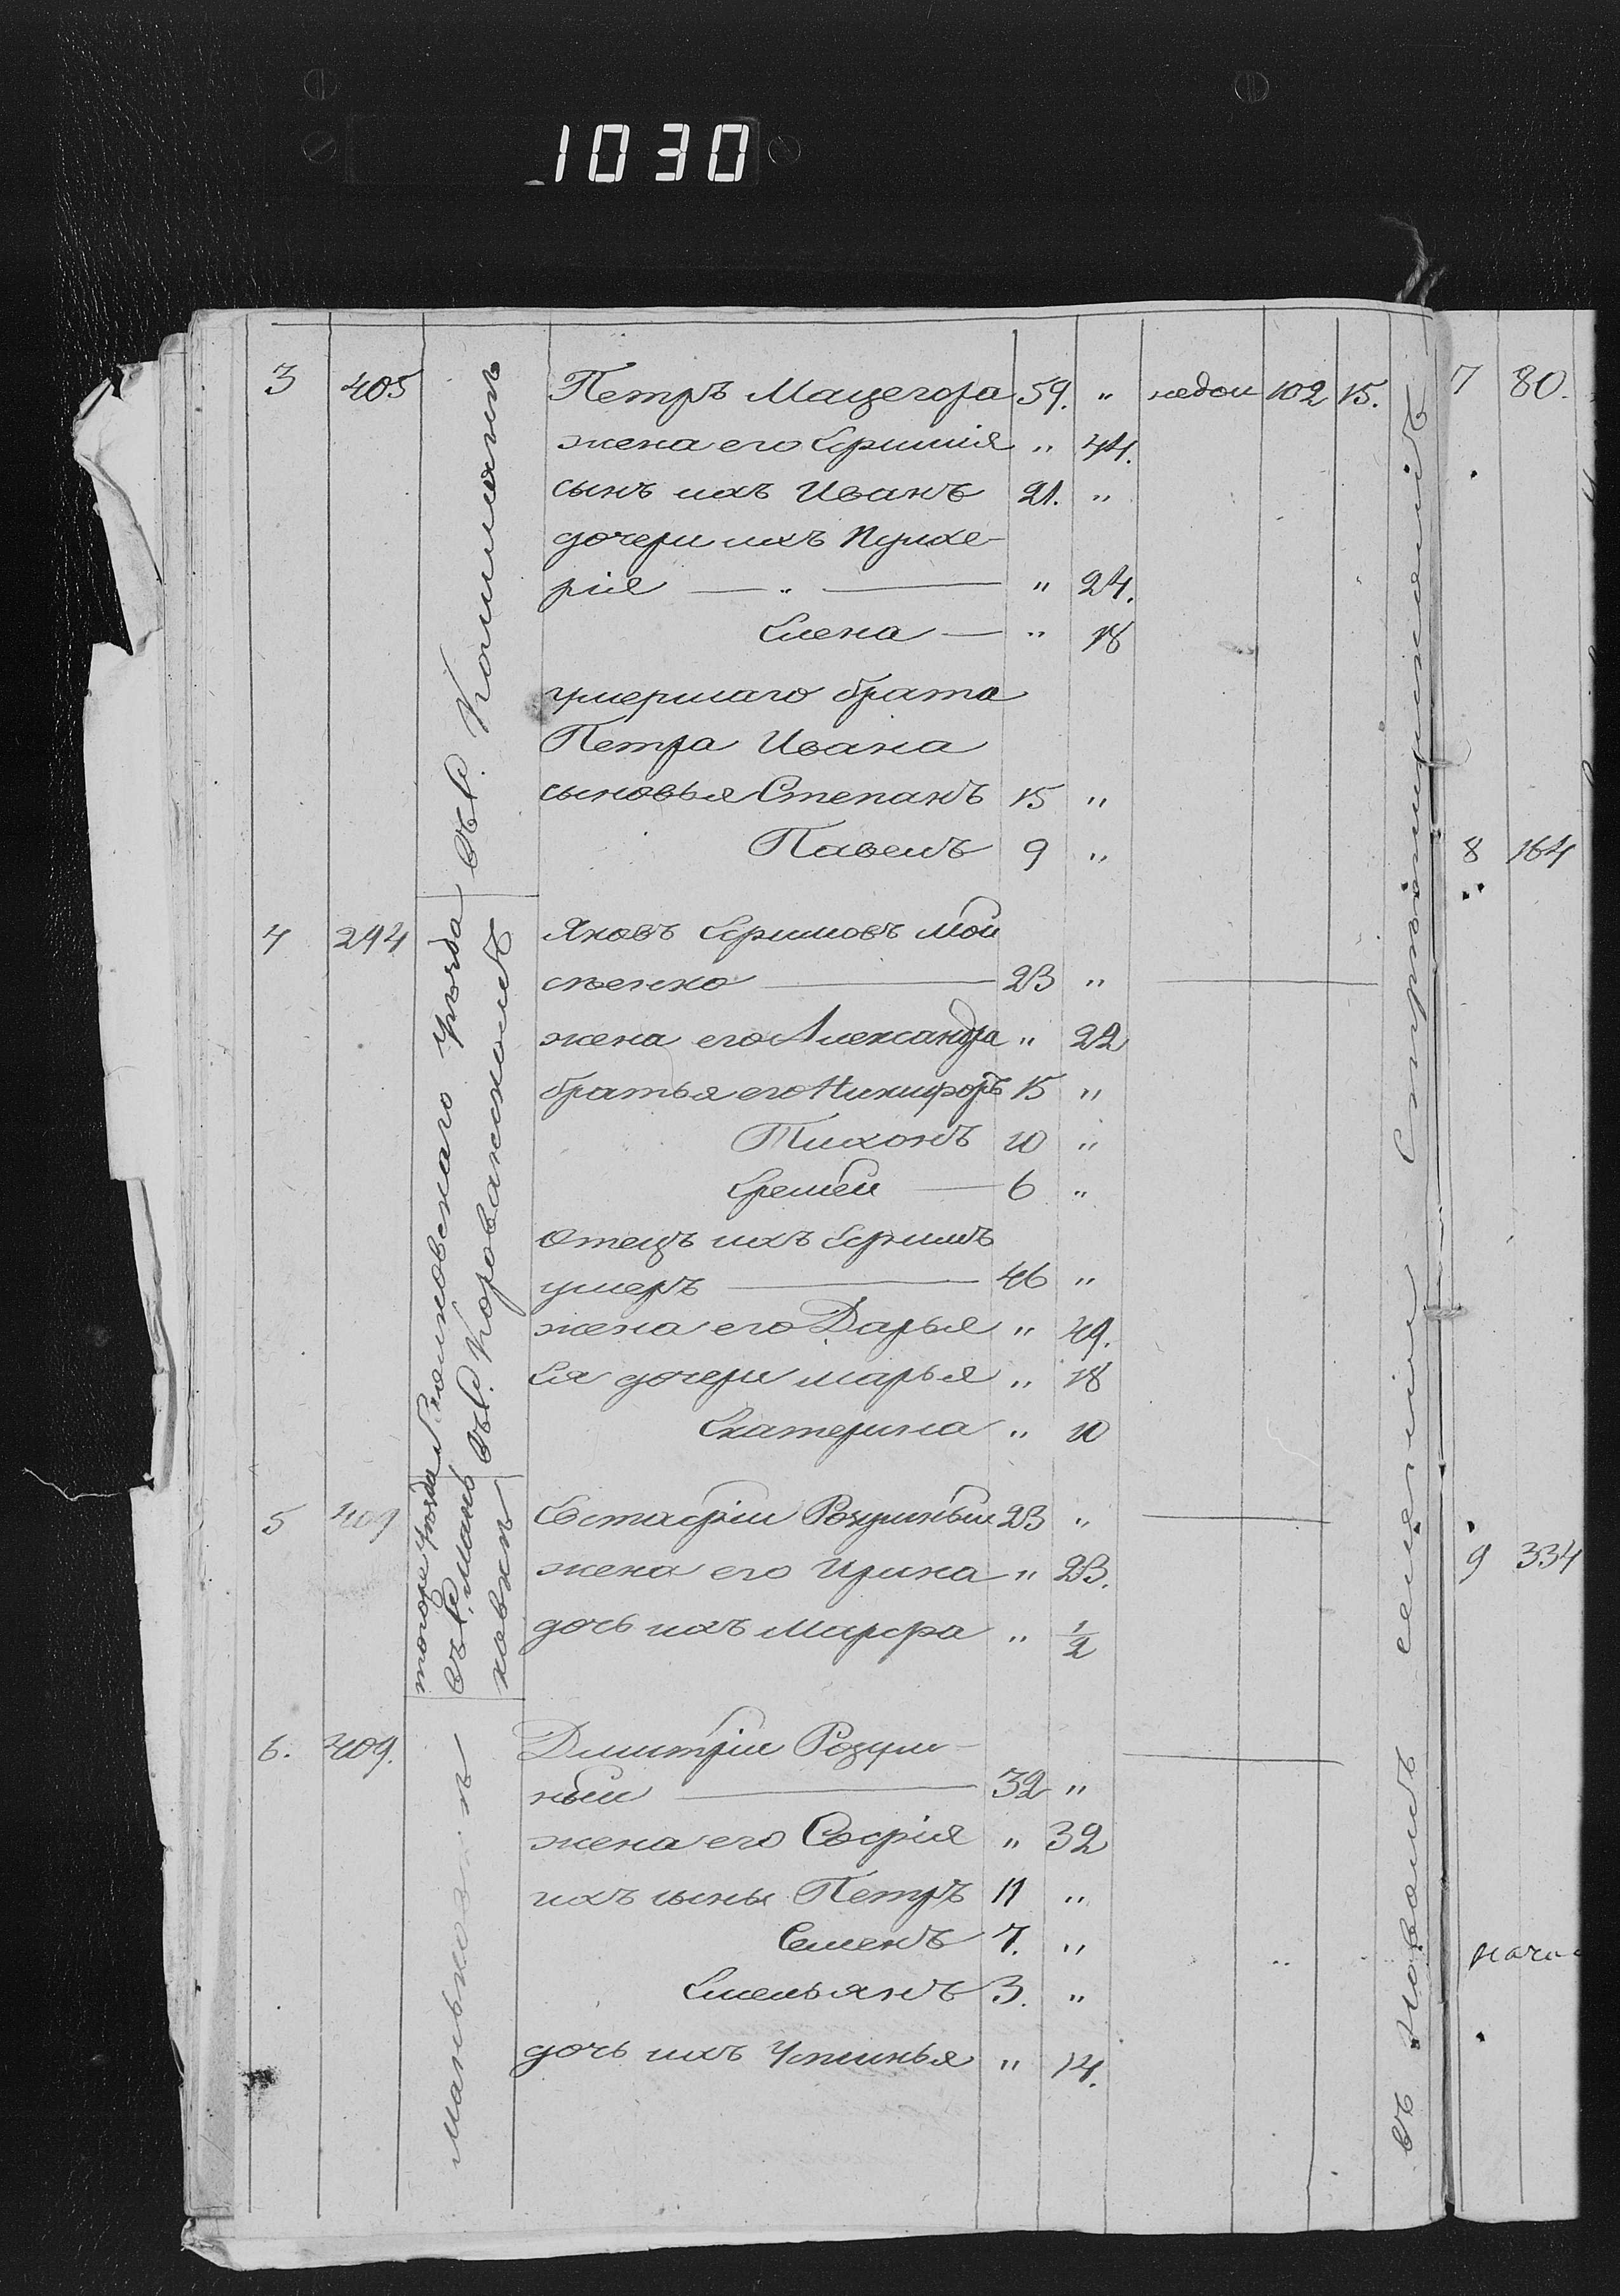 1030
3 405 Петръ Мацегора 59. " недои 102 15.
жена его Ефимія " 44.
сынъ ихъ Иванъ 21. "
дочери ихъ Пулхе-
рія — " — " 24.
Елена — " 18
умершаго брата
Петра Ивана
сыновья Степанъ 15 "
Павелъ 9 "
4 294 Яковъ Ефимовъ Мои
сѣенко — 23 "
жена его Александра " 22
братья его Никифоръ 15 "
Тихонъ 10 "
Еремѣй — 6 "
Отецъ ихъ Ефимъ
умеръ — 46 "
жена его Дарья " 49.
Ея дочери Марья " 18
Екатерина " 10
5 409 Евстафій Розумный 23 "
жена его Ирина " 23.
дочь ихъ Марфа " 1/2
6. 409. Дмитрій Розум-
ный — 32 "
жена его Софія " 32
ихъ сыны Петръ 11 "
Семенъ 7. "
Емельянъ 3. "
дочь ихъ Устинья " 14.
въ д.
уѣзда
въ д.
тогоже уѣзда
въ д. Мань
ковкѣ
въ новомъ селеніи
7 80.
8 164
9 334